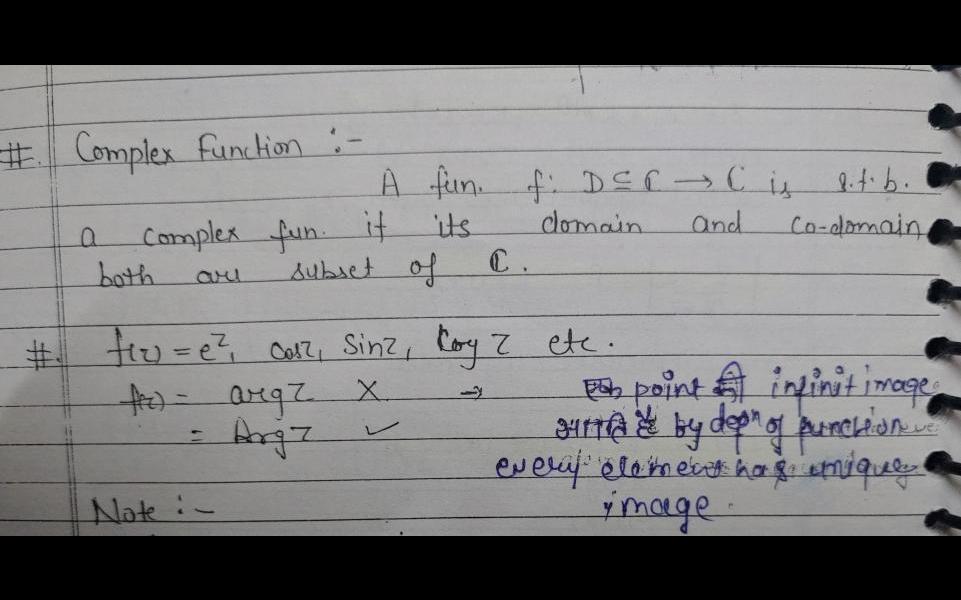 #. Complex Function :-
A fun. f: D ⊆ ℂ → ℂ is s.t.b.
a complex fun. if its domain and co-domain
both are subset of ℂ.
#. f(z) = e^z, cosz, sinz, Log z etc.
f(z) = arg z X → एक point की infinit image
= Arg z ✓ by depn of function
every element has unique
image.
Note :-